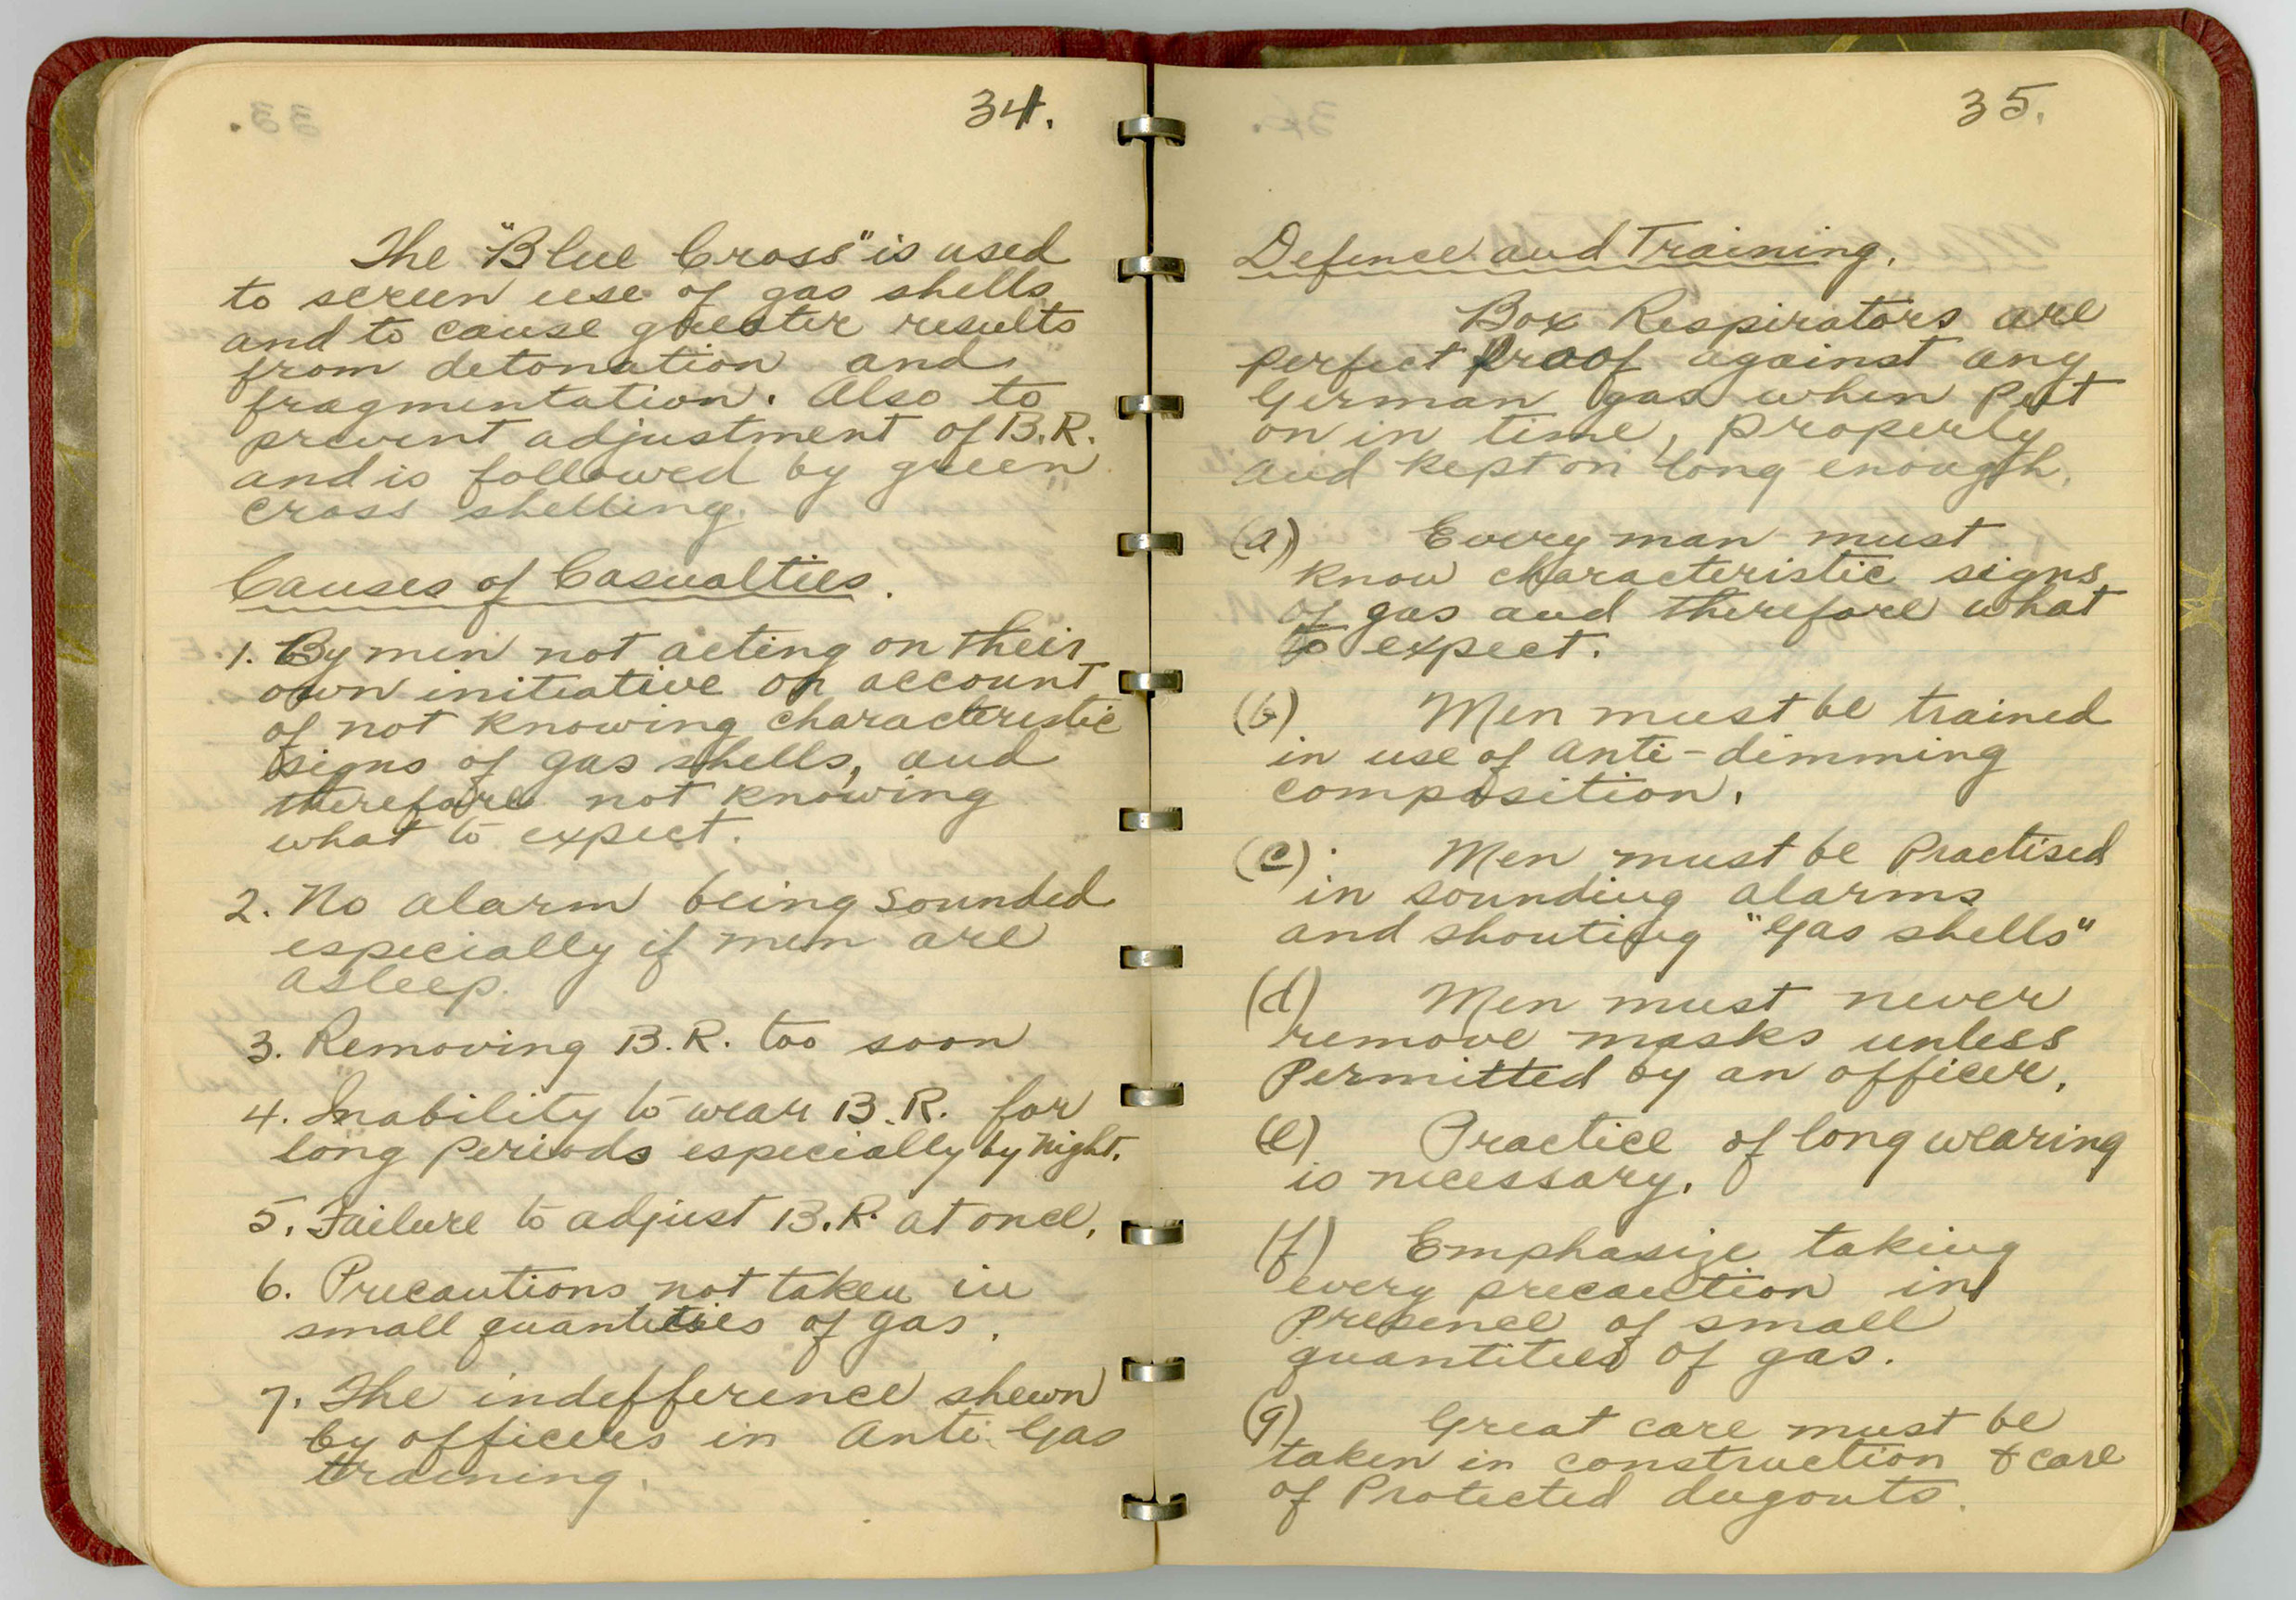 34.
The "Blue Cross" is used
to screen use of gas shells
and to cause greater results
from detonation and
fragmentation. Also to
prevent adjustment of B.R.
and is followed by "green
cross" shelling.
Causes of Casualties.
1. By men not acting on their
own initiative on account
of not knowing characteristic
signs of gas shells, and
therefore not knowing
what to expect.
2. No alarm being sounded
especially if men are
asleep.
3. Removing B.R. too soon
4. Inability to wear B.R. for
long periods especially by night.
5. Failure to adjust B.R. at once.
6. Precautions not taken in
small quantities of gas.
7. The indefference shewn
by officers in Anti Gas
training.
35.
Defence and Training.
Box Respirators are
perfect proof against any
German gas when put
on in time, properly
and kept on long enough.
(a) Every man must
know characteristic signs
of gas and therefore what
to expect.
(b) Men must be trained
in use of anti-dimming
composition.
(c) Men must be Practised
in sounding alarms
and shouting "Gas shells"
(d) Men must never
remove masks unless
Permitted by an officer.
(e) Practice of long wearing
is necessary.
(f) Emphasize taking
every precaution in
presence of small
quantities of gas.
(g) Great care must be
taken in construction & care
of Protected dugouts.